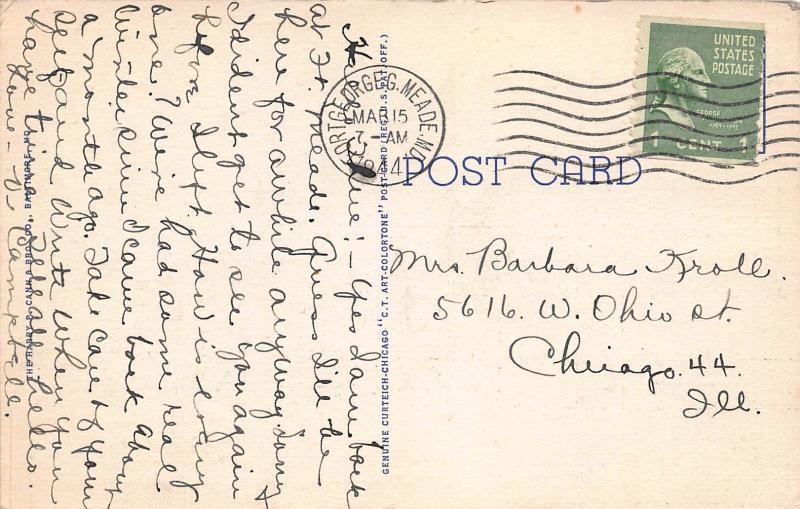 Hello Sue! - Yes I am back
at Ft. Meade. Guess I'll be
here for awhile anyway. Sorry
I didn't get to see you again
before I left. How is every
one? We've had some real
winter since I came back about
a month ago. Take care of your
self and write when you
have time. Tell all hello.
Love -
THE HARRY P. CANN & BRO CO., BALTIMORE, MD.
GENUINE CURTEICH-CHICAGO "C.T. ART-COLORTONE" POST CARD (REG. U.S. PAT. OFF.)
FORT GEORGE G. MEADE, MD.
MAR 15
7-AM
1944
UNITED
STATES
POSTAGE
GEORGE
1 CENT 1
POST CARD
Mrs. Barbara Kroll.
5616. W. Ohio St.
Chicago. 44.
Ill.